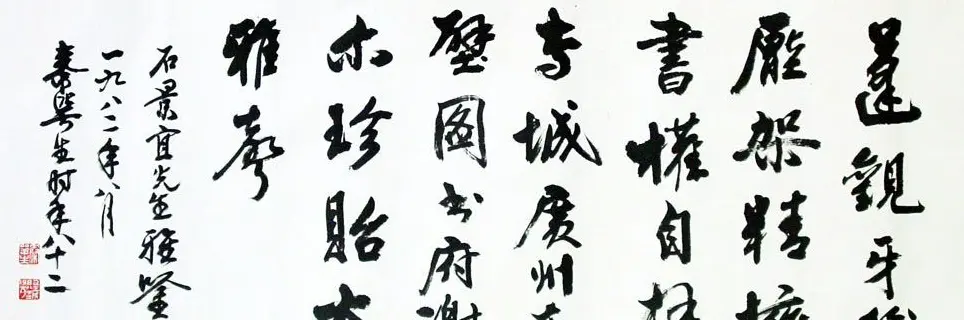 蓬觀牙
廳架精
書權自
城廣州
壁圖書府謝
亦珍貽
雅聲
石景宜先生雅鑒
一九八二年八月
秦咢生时年八十二